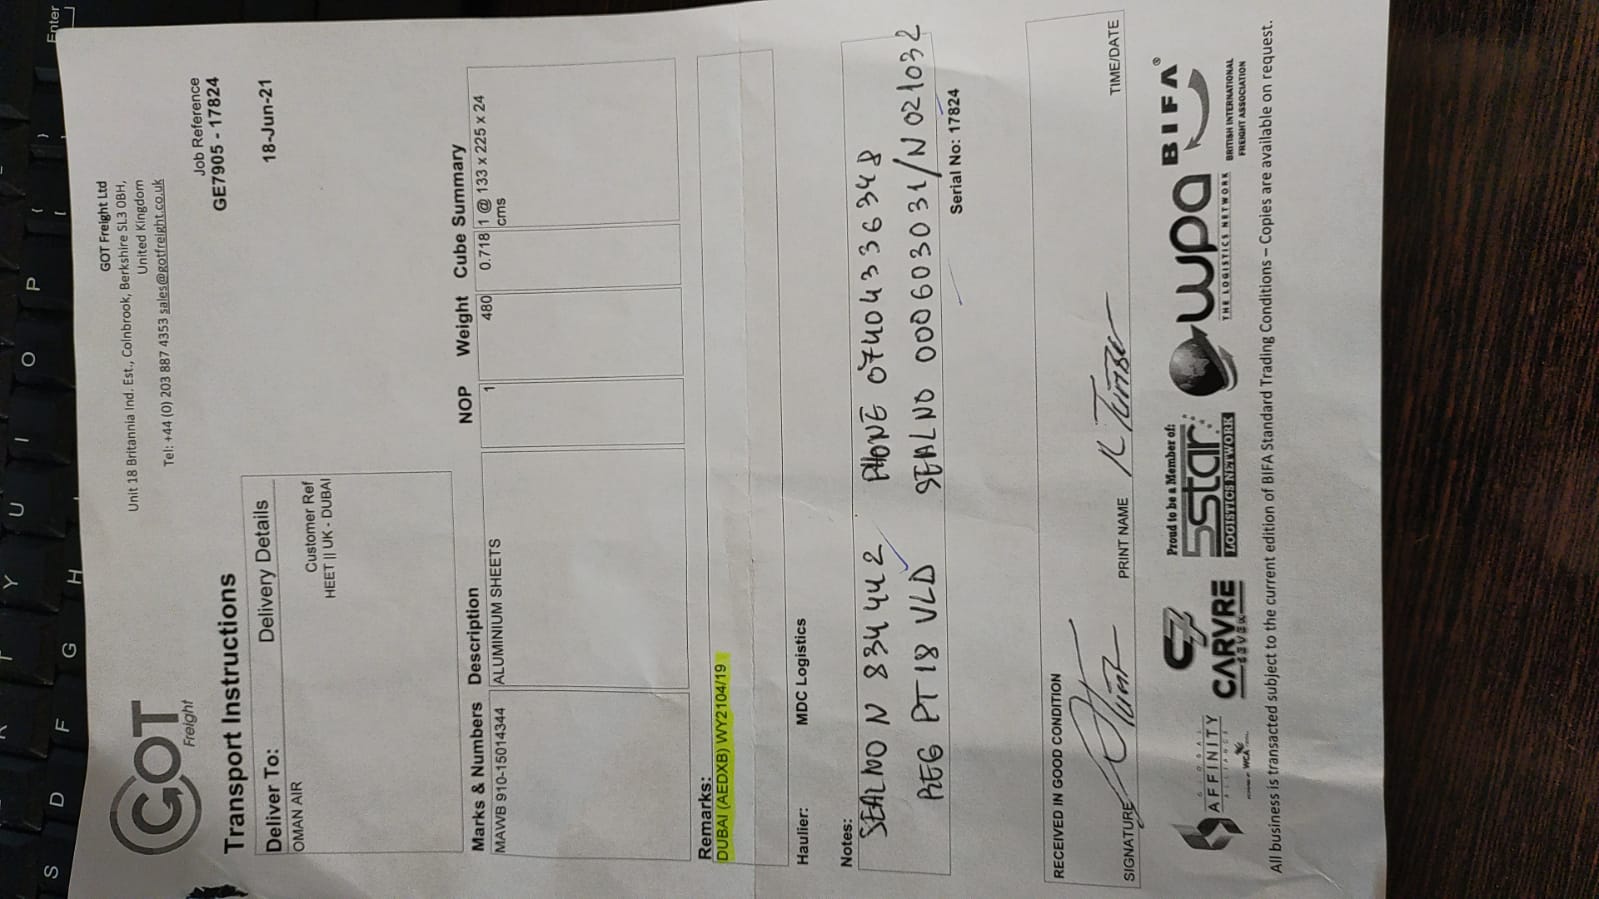 GOT
Freight
GOT Freight Ltd
Unit 18 Britannia Ind. Est., Colnbrook, Berkshire SL3 0BH,
United Kingdom
Tel: +44 (0) 203 887 4353 sales@gotfreight.co.uk
Job Reference
GE7905 - 17824
Transport Instructions
18-Jun-21
Deliver To:
Delivery Details
OMAN AIR
Customer Ref
HEET || UK - DUBAI
Marks & Numbers Description NOP Weight Cube Summary
MAWB 910-15014344 ALUMINIUM SHEETS 1 480 0.718 1 @ 133 x 225 x 24
cms
Remarks:
DUBAI (AEDXB) WY2104/19
Haulier: MDC Logistics
Notes:
SEAL NO N 834442 PHONE 07404336348
REG PT18 VLD SEAL NO 000603031/N021032
Serial No: 17824
RECEIVED IN GOOD CONDITION
SIGNATURE PRINT NAME TIME/DATE
Proud to be a Member of:
GLOBAL
AFFINITY
ALLIANCE
WCA
C7
CARVRE
SEVEN
5star
LOGISTICS NETWORK
wpa
THE LOGISTICS NETWORK
BIFA®
BRITISH INTERNATIONAL
FREIGHT ASSOCIATION
All business is transacted subject to the current edition of BIFA Standard Trading Conditions – Copies are available on request.
Enter
Y U I O P { [ }
S D F G H